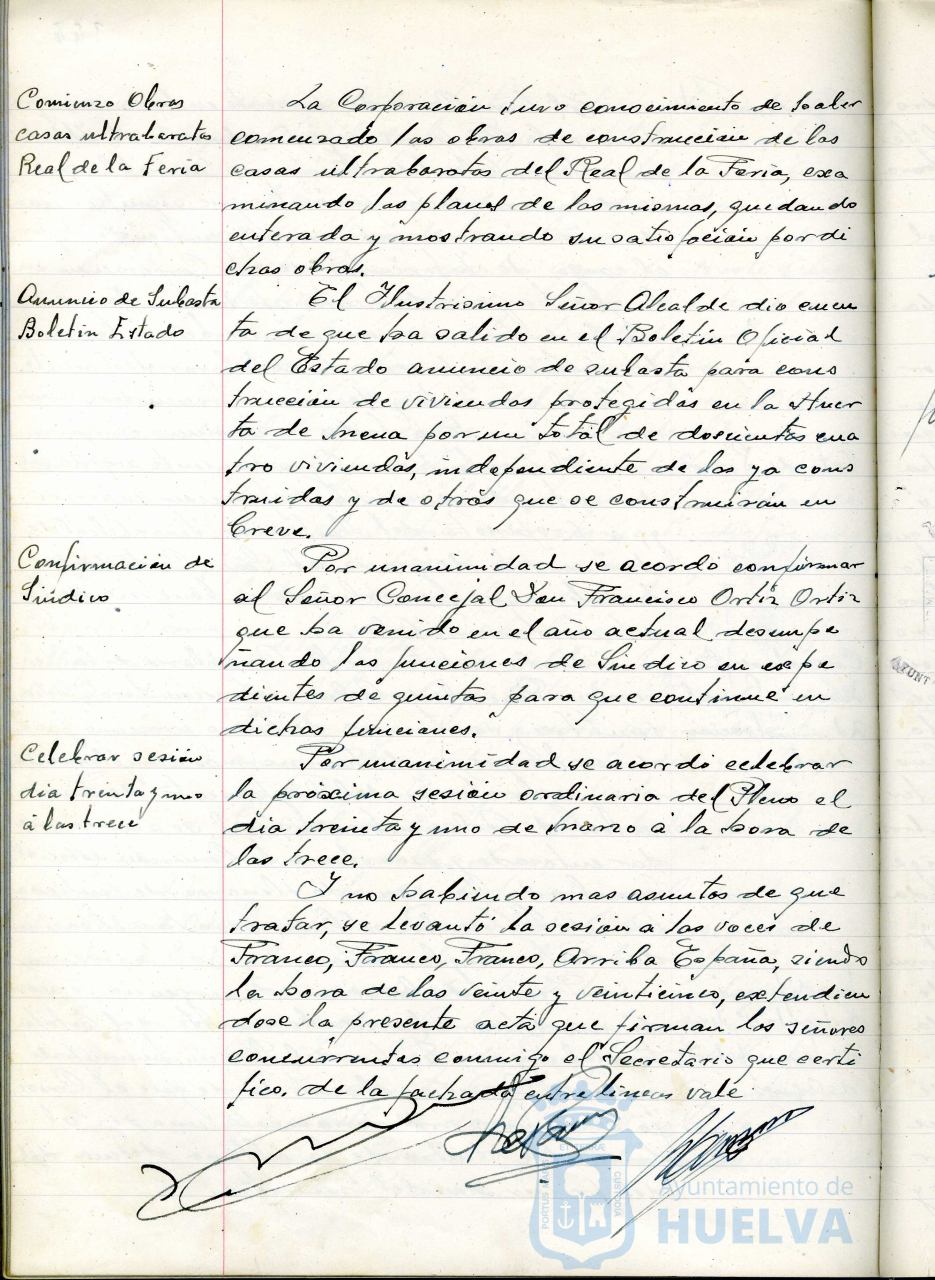 Comienzo Obras
casas ultrabaratas
Real de la Feria
La Corporación tuvo conocimiento de haber
comenzado las obras de construcción de las
casas ultrabaratas del Real de la Feria, exa
minando los planos de las mismas, quedando
enterada y mostrando su satisfación por di
chas obras.
Anuncio de Subasta
Boletín Estado
El Ilustrisimo Señor Alcalde dio cuen
ta de que ha salido en el Boletín Oficial
del Estado anuncio de subasta para cons
trucción de viviendas protegidas en la Huer
ta de Mena por un total de doscientas cua
tro viviendas, independiente de las ya cons
truidas y de otras que se construirán en
breve.
Confirmación de
Síndico
Por unanimidad se acordó confirmar
al Señor Concejal Don Francisco Ortiz Ortiz
que ha venido en el año actual desempe
ñando las funciones de Síndico en expe
dientes de quintas para que continue en
dichas funciones.
Celebrar sesión
día treinta y uno
á las trece
Por unanimidad se acordó celebrar
la próxima sesión ordinaria del Pleno el
día treinta y uno de Marzo á la hora de
las trece.
Y no habiendo mas asuntos de que
tratar, se levantó la sesión á las voces de
Franco, Franco, Franco, Arriba España, siendo
la hora de las veinte y veinticinco, extendien
dose la presente acta que firman los señores
concurrentes conmigo el Secretario que certi
fico. de la fachada entre lineas vale
PORTUS
CUSTODIA
Ayuntamiento de
HUELVA